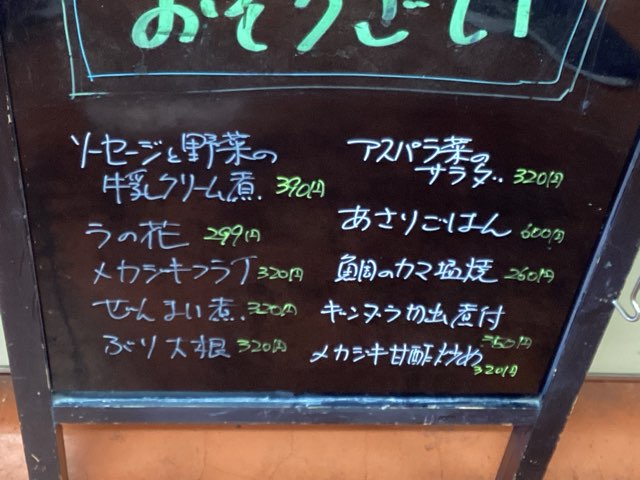 おそうざい
ソーセージと野菜の
牛乳クリーム煮. 390円
うの花 299円
メカジキフライ 320円
ぜんまい煮. 320円
ぶり大根 320円
アスパラ菜の
サラダ.. 320円
あさりごはん 600円
鯛のカマ塩焼 260円
ギンダラ切出煮付
350円
メカジキ甘酢炒め
320円